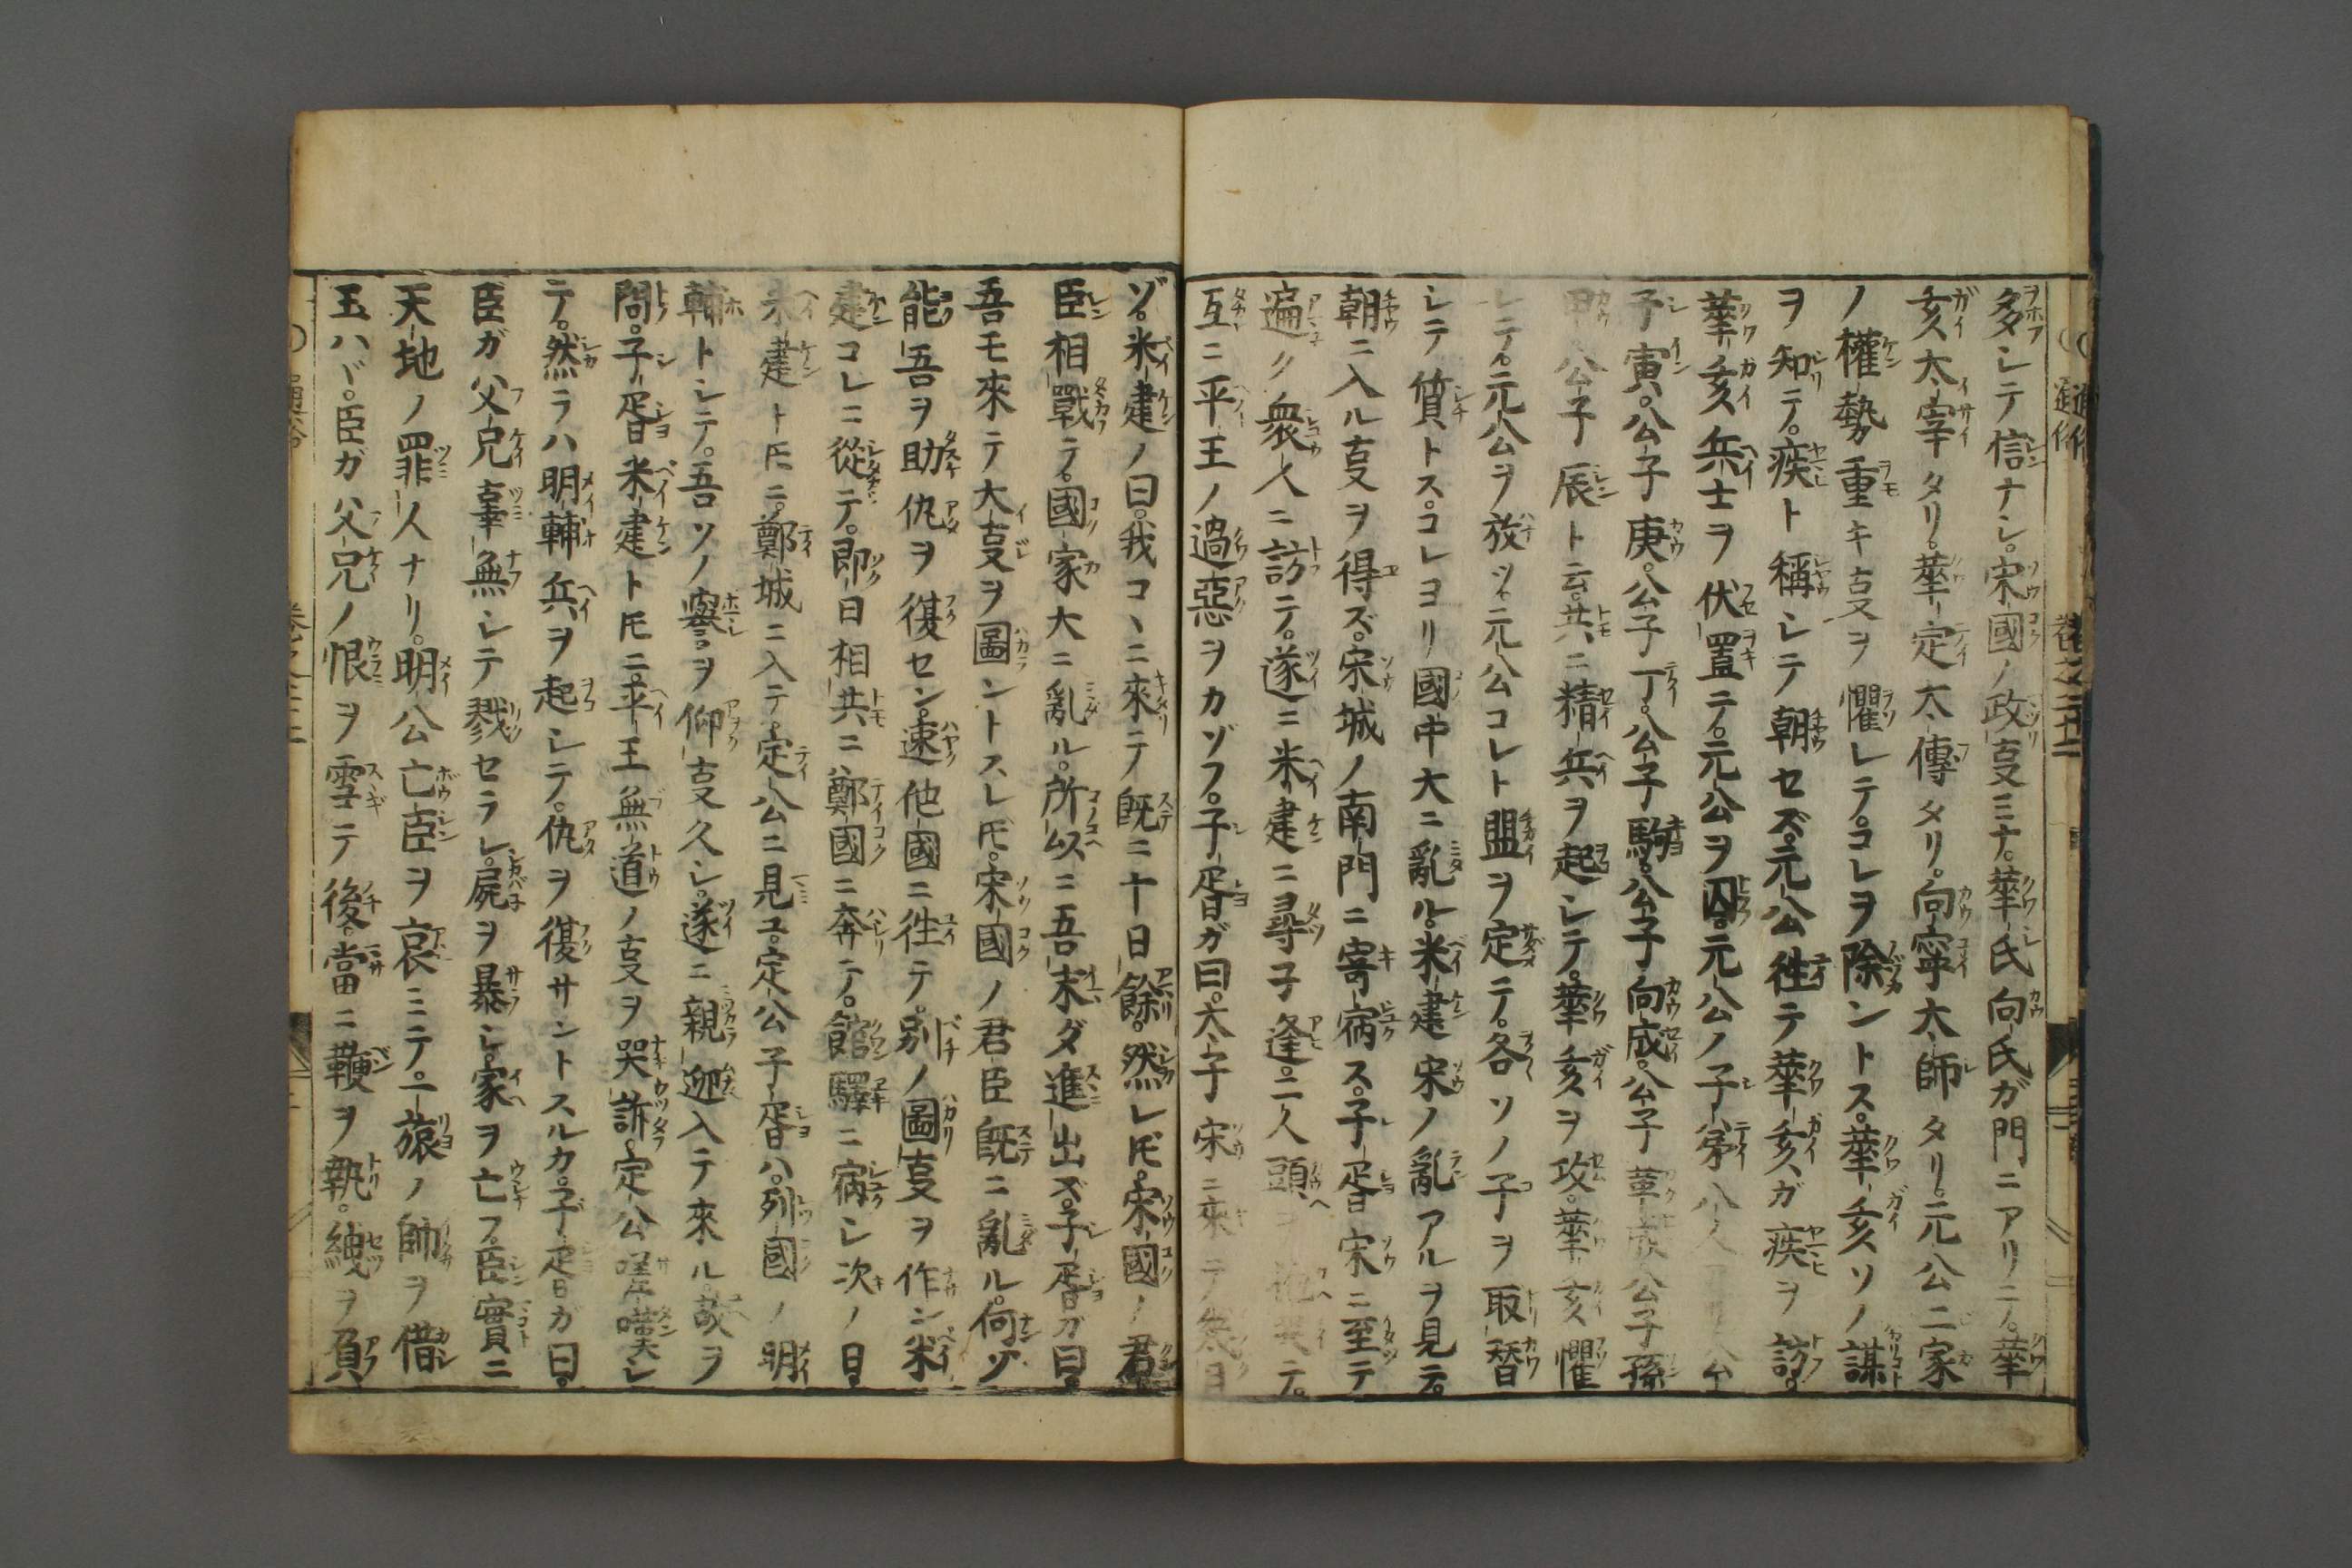 多シテ信ナシ。宋國ノ政叓ミナ。華氏向氏ガ門ニアリニ。華
亥太宰タリ。華定太傳タリ。向寧太師タリ。元公二家
ノ權勢重キ叓ヲ懼レテ。コレヲ除ントス。華亥ソノ謀
ヲ知テ。疾ト稱シテ朝セズ。元公徃テ華亥ガ疾ヲ訪。
華亥兵士ヲ伏置ニ。元公ヲ囚。元公ノ子弟八人
子寅。公子庚。公子丁。公子駒。公子向成。公子華 公子孫
甲公子辰ト云。共ニ精兵ヲ起シテ。華亥ヲ攻。華亥懼
レテ。元公ヲ放ツ。元公コレト盟ヲ定テ。各ソノ子ヲ取替
シテ質トス。コレヨリ國中大ニ亂ル。米建宋ノ亂アルヲ見テ。
朝ニ入ル叓ヲ得ズ。宋城ノ南門ニ寄宿ス。子胥宋ニ至テ
遍ク衆人ニ訪テ。遂ニ米建ニ尋子逢。二人頭ヲ テ。
互ニ平王ノ過惡ヲカゾフ。子胥ガ曰。太子宋ニ來テ 日
ゾ。米建ノ曰。我コヽニ來テ既ニ十日餘。然レ𪜈。宋國ノ君
臣相戰テ。國家大ニ亂ル。所以ニ吾末ダ進出ズ。子胥ガ曰。
吾モ來テ大叓ヲ圖ントスレ𪜈。宋國ノ君臣既ニ亂ル。何ゾ
能吾ヲ助仇ヲ復セン。速他國ニ徃テ。別ノ圖叓ヲ作ン。米
建コレニ從テ。即日相共ニ鄭國ニ奔テ。館驛ニ宿シ次ノ日。
米建ト𪜈ニ。鄭城ニ入テ。定公ニ見ユ。定公子胥ハ。列國ノ明
輔トシテ。吾ソノ寳ヲ仰叓久シ。遂ニ親迎入テ來ル。故ヲ
問。子胥米建ト𪜈ニ。平王無道ノ叓ヲ哭訴。定公嗟嘆シ
テ。然ラハ明輔兵ヲ起シテ。仇ヲ復サントスルカ。子胥ガ曰。
臣ガ父兄辜無シテ戮セラレ。屍ヲ暴シ。家ヲ亡フ。臣實ニ
天地ノ罪人ナリ。明公亡臣ヲ哀ミテ。一旅ノ師ヲ借
玉ハヾ。臣ガ父兄ノ恨ヲ雪テ後。當ニ鞭ヲ執。紲ヲ負